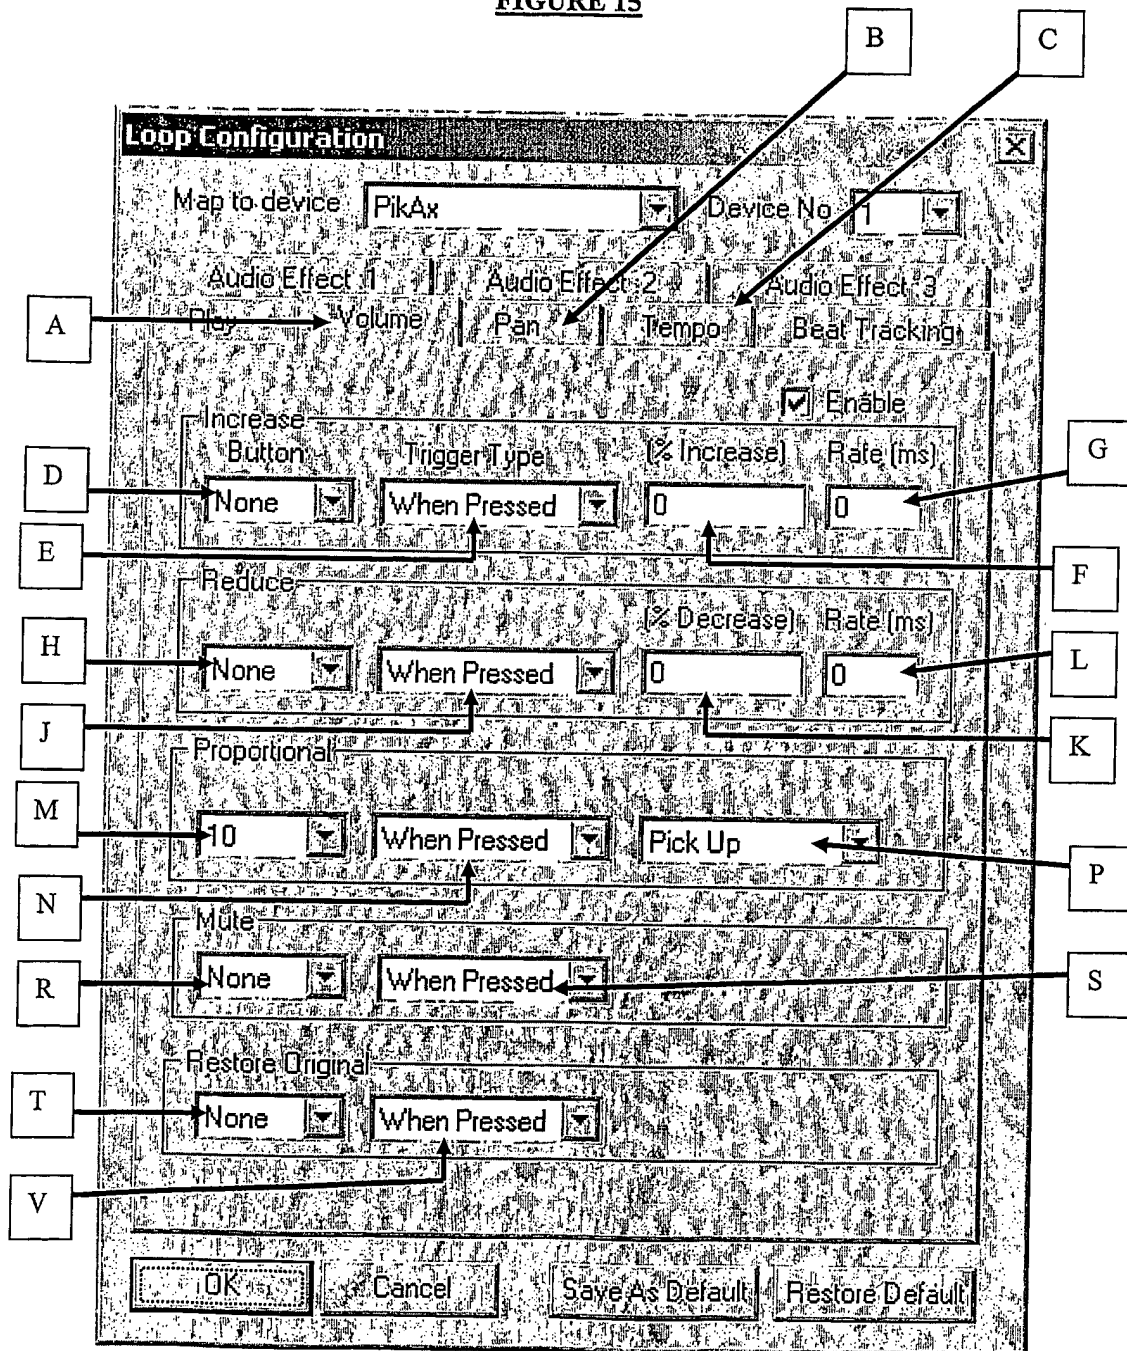 FIGURE 15
B C
Loop Configuration
Map to device PikAx Device No 1
Audio Effect :1 Audio Effect :2 Audio Effect :3
A Play Volume Pan Tempo Beat Tracking
Enable
Increase
Button Trigger Type (% Increase) Rate (ms) G
D None When Pressed 0 0
E F
Reduce
(% Decrease) Rate (ms)
H None When Pressed 0 0 L
J K
Proportional
M 10 When Pressed Pick Up
N P
Mute
R None When Pressed S
Restore Original
T None When Pressed
V
OK Cancel Save As Default Restore Default